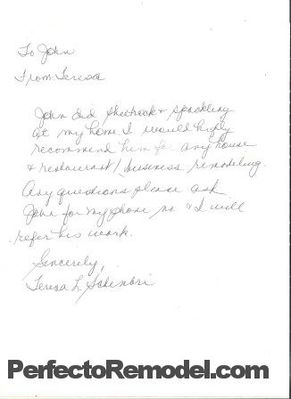 To John
From Teresa
John did Sheetrock & spackling
at my home. I would highly
recommend him for any house
& restaurant / business remodeling.
Any questions please ask
John for my phone no & I will
refer his work.
Sincerely,
Teresa L.
PerfectoRemodel.com